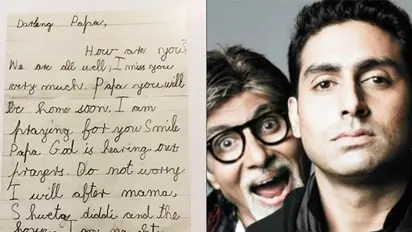 Darling Papa,
How are you?
We are all well. I miss you
very much. Papa you will
be home soon. I am
praying for you Smile
Papa God is hearing our
prayers. Do not worry
I will after mama,
Shweta diddi and the
house. I am